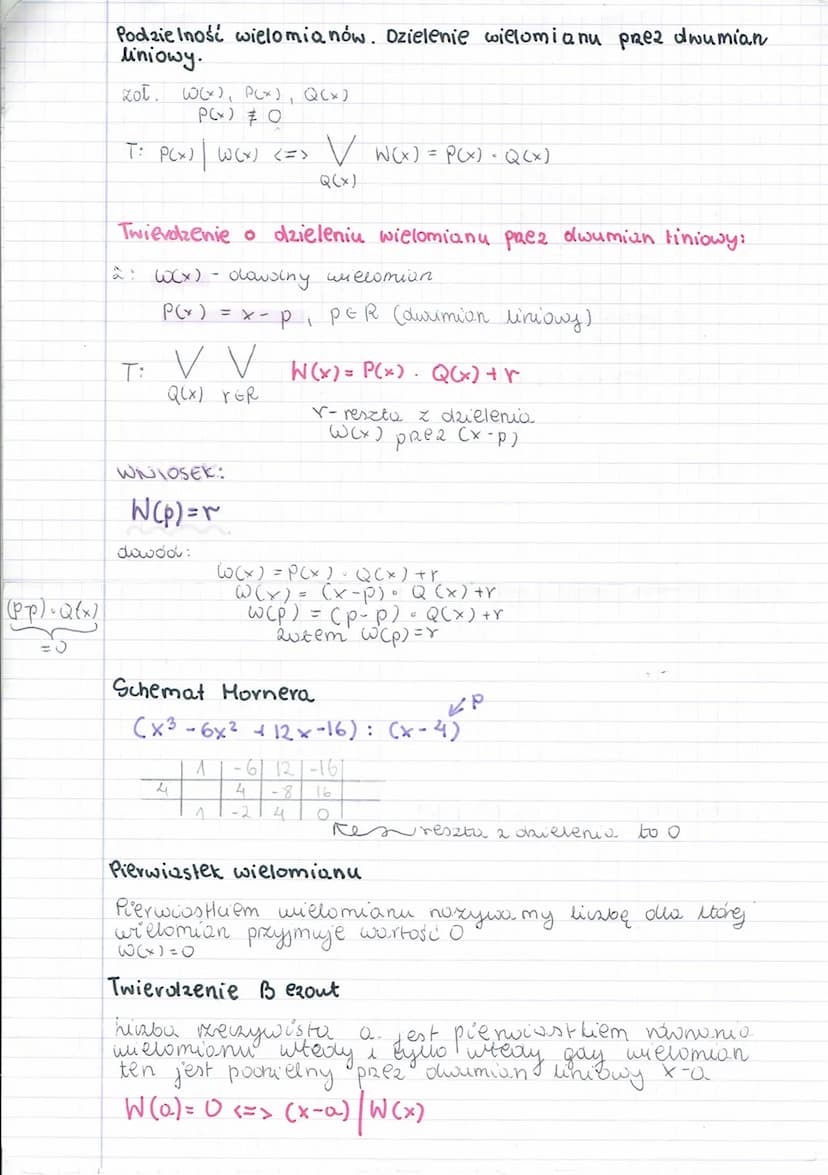 Podzielność wielomianów. Dzielenie wielomianu przez dwumian
liniowy.
zał. W(x), P(x), Q(x)
P(x) ≢ 0
T: P(x) | W(x) <=> V W(x) = P(x) · Q(x)
Q(x)
Twierdzenie o dzieleniu wielomianu przez dwumian liniowy:
Z: W(x) - dowolny wielomian
P(x) = x - p, p∈R (dwumian liniowy)
T: V V W(x) = P(x) · Q(x) + r
Q(x) r∈R
r - reszta z dzielenia
W(x) przez (x-p)
WNIOSEK:
W(p) = r
dowód:
W(x) = P(x) · Q(x) + r
W(x) = (x-p) · Q(x) + r
(p-p) · Q(x)
W(p) = (p-p) · Q(x) + r
= 0
zatem W(p) = r
Schemat Hornera
p
(x³ - 6x² + 12x - 16) : (x - 4)
1 | -6 | 12 | -16
4 | | 4 | -8 | 16
1 | -2 | 4 | 0
reszta z dzielenia to 0
Pierwiastek wielomianu
Pierwiastkiem wielomianu nazywamy liczbę dla której
wielomian przyjmuje wartość 0
W(x) = 0
Twierdzenie Bezout
Liczba rzeczywista a jest pierwiastkiem równania
wielomianu wtedy i tylko wtedy gdy wielomian
ten jest podzielny przez dwumian liniowy x-a
W(a) = 0 <=> (x-a) | W(x)